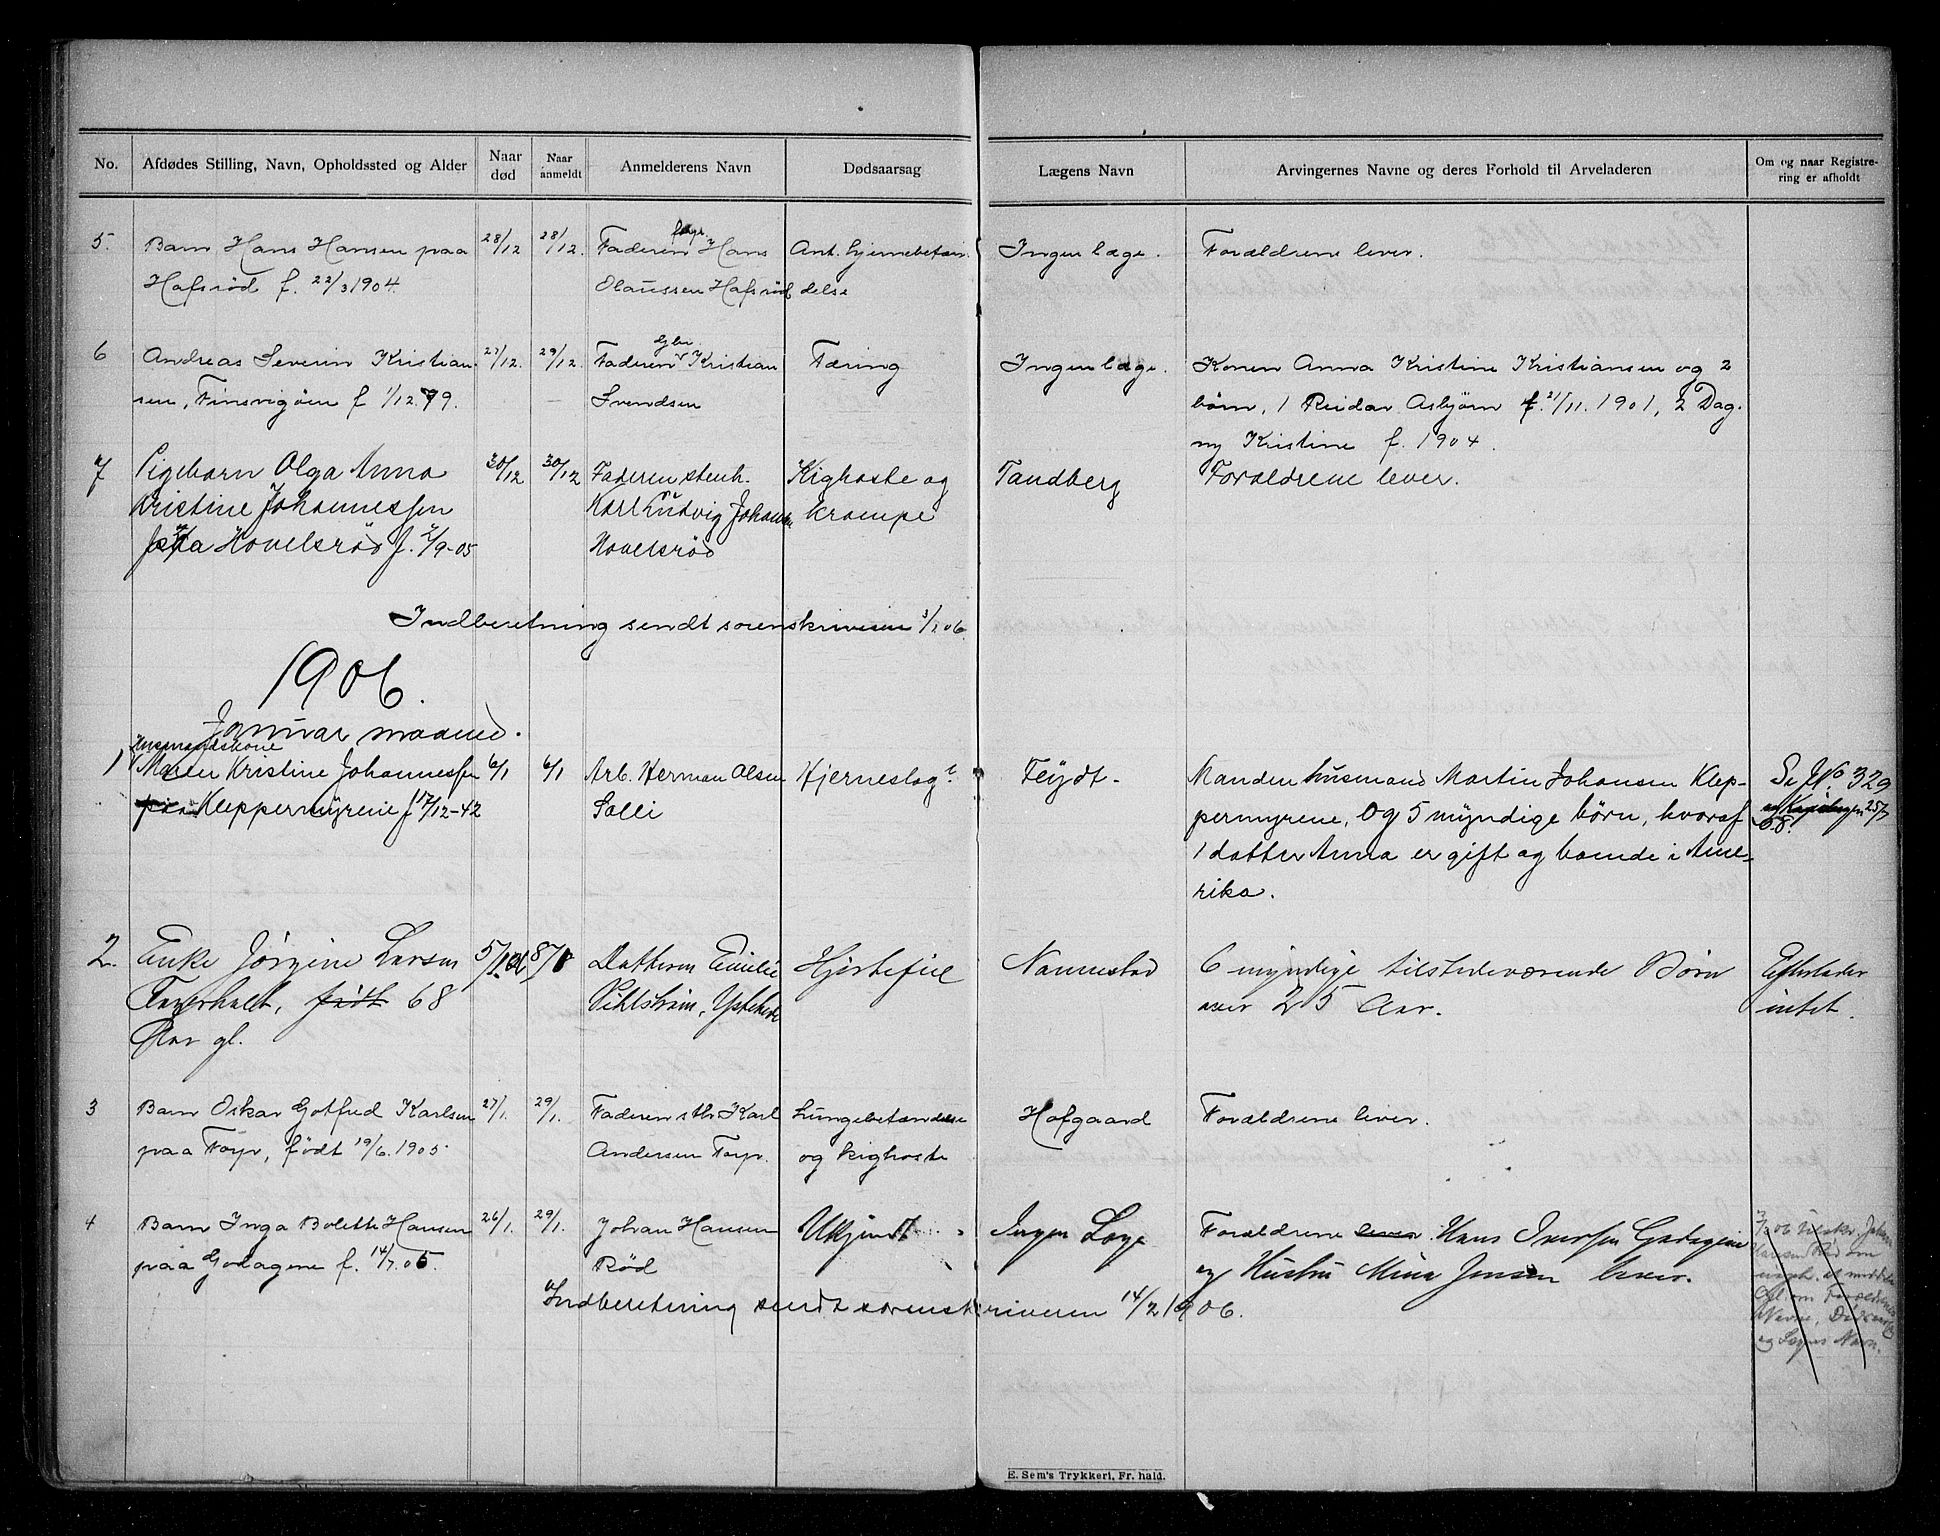 No. Afdødes Stilling, Navn, Opholdssted og Alder Naar død Naar anmeldt Anmelderens Navn Dødsaarsag Lægens Navn Arvingernes Navne og deres Forhold til Arveladeren Om og naar Registrering er afholdt
5. Barn Hans Hansen paa 28/12 28/12. Faderen Hans Ant. hjernebetæn Ingen læge. Forældrene lever.
Hafsrød f. 22/3 1904. Olaussen Hafsrød delse
6 Andreas Severin Kristian 27/12. 29/12. Faderen Gbr. Kristian Tæring Ingen læge. Konen Anna Kristine Kristiansen og 2
sen, Finsvigøen f 1/12.79. Svendsen børn, 1 Reidar Asbjørn f. 21/11.1901, 2 Dag.
ny Kristine f. 1904.
7 Pigebarn Olga Anna 30/12 30/12 Faderen stenh. Kighoste og Tandberg Forældrene lever.
Kristine Johannessen Karl Ludvig Johansen krampe
Hovelsrød f. 2/9-05 Hovelsrød
Indberetning sendt sorenskriveren 3/1.06.
1906.
Januar maaned.
Husmandskone
1 Maren Kristine Johannessen 6/1 6/1 Arb. Herman Olsen Hjerneslag Feydt. Manden husmand Martin Johansen Klep- Se No 329
paa Kleppermyrene f 17/12-42 Solli permyrene, og 5 myndige børn, hvoraf
1 datter Anna er gift og boende i Ame-
rika.
2. Enke Jørgine Larsen 5/1 06 8/1 Datteren Emilie Hjertefeil Nannestad 6 myndige tilstedeværende Børn Efterlader
født 68 over 25 Aar. intet.
Aar gl.
3 Barn Oskar Gotfred Karlsen 27/1. 29/1. Faderen sth Karl Lungebetændelse Hofgaard Forældrene lever.
paa Torp, født 19/6.1905 Andersen Torp. og kighoste
4 Barn Inga Bolette Hansen 26/1. 29/1. Johan Hansen Ukjendt Ingen Læge Forældrene lever. Hans Iversen Godagene
paa Godagene f. 14/7.05. Rød og Hustru Mina Jensen lever.
Indberetning sendt sorenskriveren 14/2 1906.
om Forældrenes
Navne,
og Lægens Navn.
E. Sem's Trykkeri, Fr. hald.